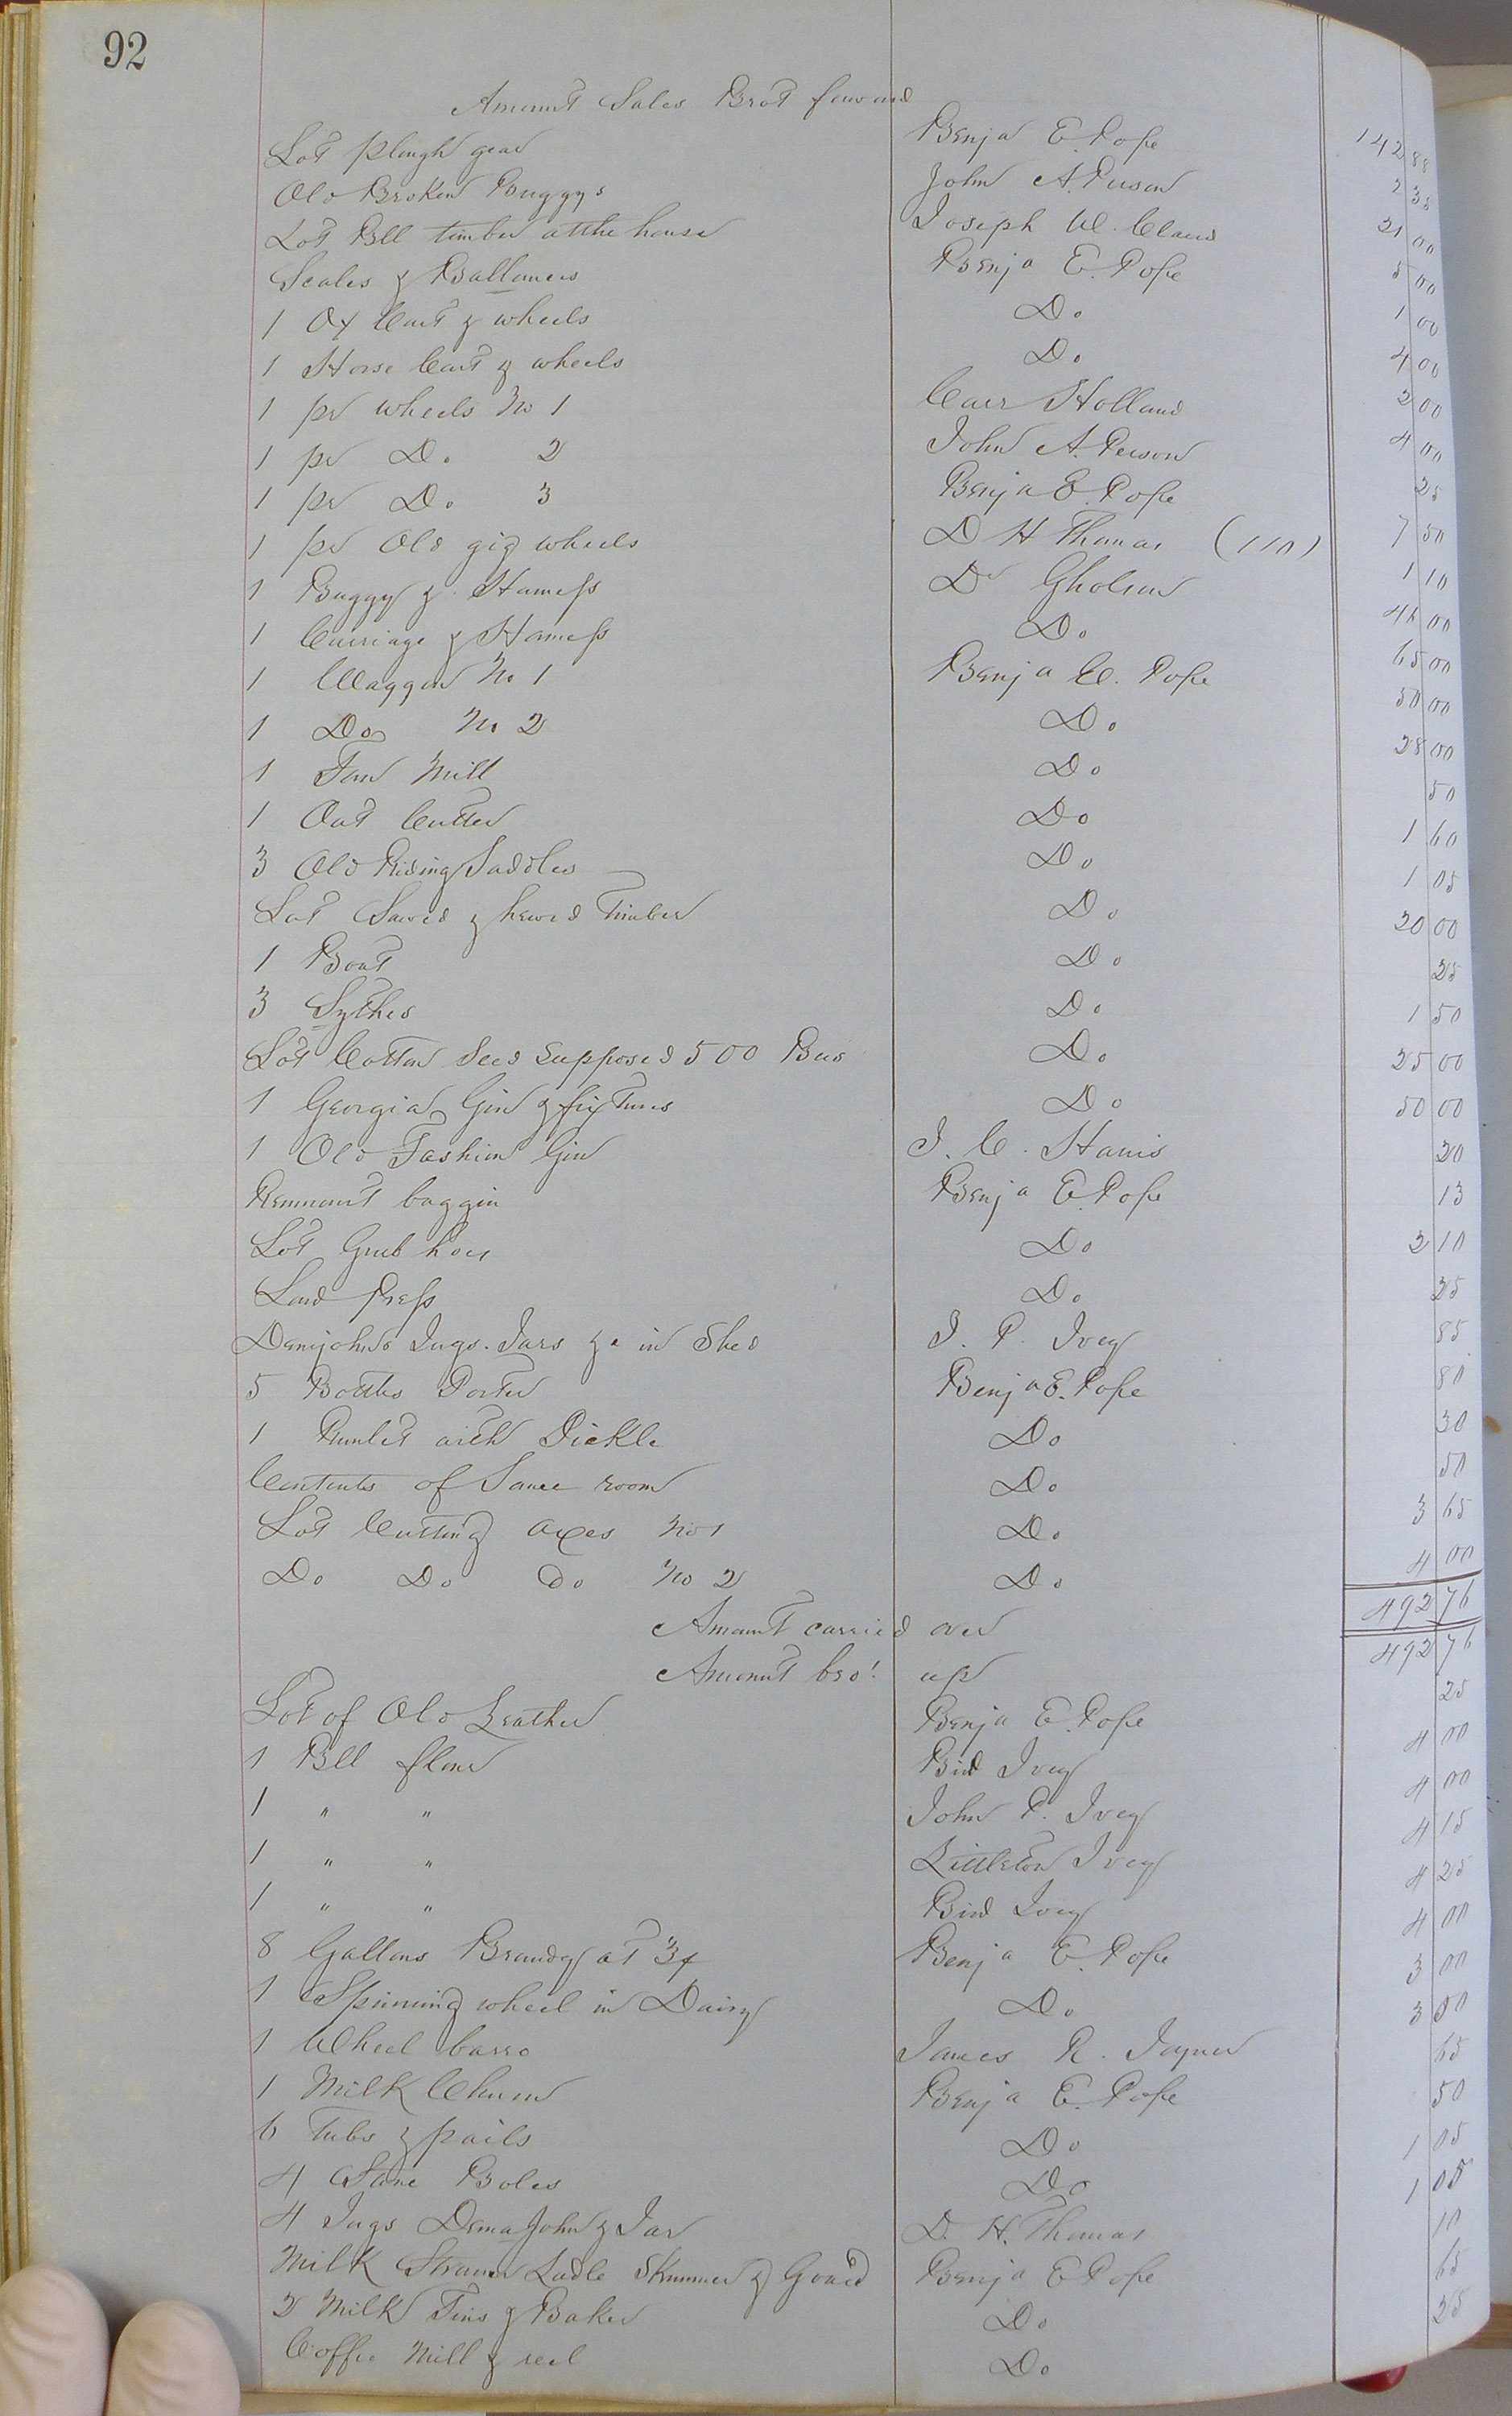 92
Amount Sales Brot forward 142 88
Lot plough gear Benja E. Pope 2 38
Old Broken Buggys John A. Person 21 00
Lot Bll timber at the house Joseph W. Claud 5 00
Scales & Ballances Benja E. Pope 1 00
1 Ox Cart & wheels Do 4 00
1 Horse Cart & wheels Do 2 00
1 pr wheels No 1 Carr Holland 4 00
1 pr Do. 2 John A. Person 25
1 pr Do. 3 Benja E. Pope 7 50
1 pr Old gig wheels D H Thomas (110) 1 10
1 Buggy & Harness Dr Gholson 46 00
1 Carriage & Harness Do. 65 00
1 Waggon No 1 Benja E. Pope 50 00
1 Do No 2 Do. 28 00
1 Fan Mill Do 50
1 Oat Cutter Do 1 60
3 Old Riding Saddles Do 1 05
Lot Sawed & hewed Timber Do 20 00
1 Boat Do 25
3 Sythes Do 1 50
Lot Cotton Seed supposed 500 Bus Do. 25 00
1 Georgia Gin & fixtures Do 50 00
1 Old Fashion Gin J. C. Harris 20
Remnant baggin Benja E. Pope 13
Lot Grub hoes Do 2 10
Lard Press Do. 25
Demijohns Jugs. Jars &c in Shed J. P. Ivey 85
5 Bottles Porter Benja E. Pope 80
1 Runlet with Pickle Do 30
Contents of Sauce room Do 50
Lot Cutting axes No 1 Do. 3 65
Do Do. Do No 2 Do. 4 00
Amount carried over 492 76
Amount bro! up 492 76
Lot of Old Leather Benja E. Pope 25
1 Bll flour Bird Ivey 4 00
1 " " John P. Ivey 4 00
1 " " Littleton Ivey 4 15
1 " " Bird Ivey 4 25
8 Gallons Brandy at 3/ Benja E. Pope 4 00
1 Spinning wheel in Dairy Do. 3 00
1 Wheel barro James R. Joyner 3 00
1 Milk Churn Benja E. Pope 65
6 Tubs & pails Do 50
4 Stone Boles Do 1 05
4 Jugs Dema John & Jar D. H. Thomas 1 05
Milk Straner Ladle Skimmer & Gourd Benja E Pope 10
2 Milk Tins & Baker Do. 65
Coffe Mill & reel Do 25